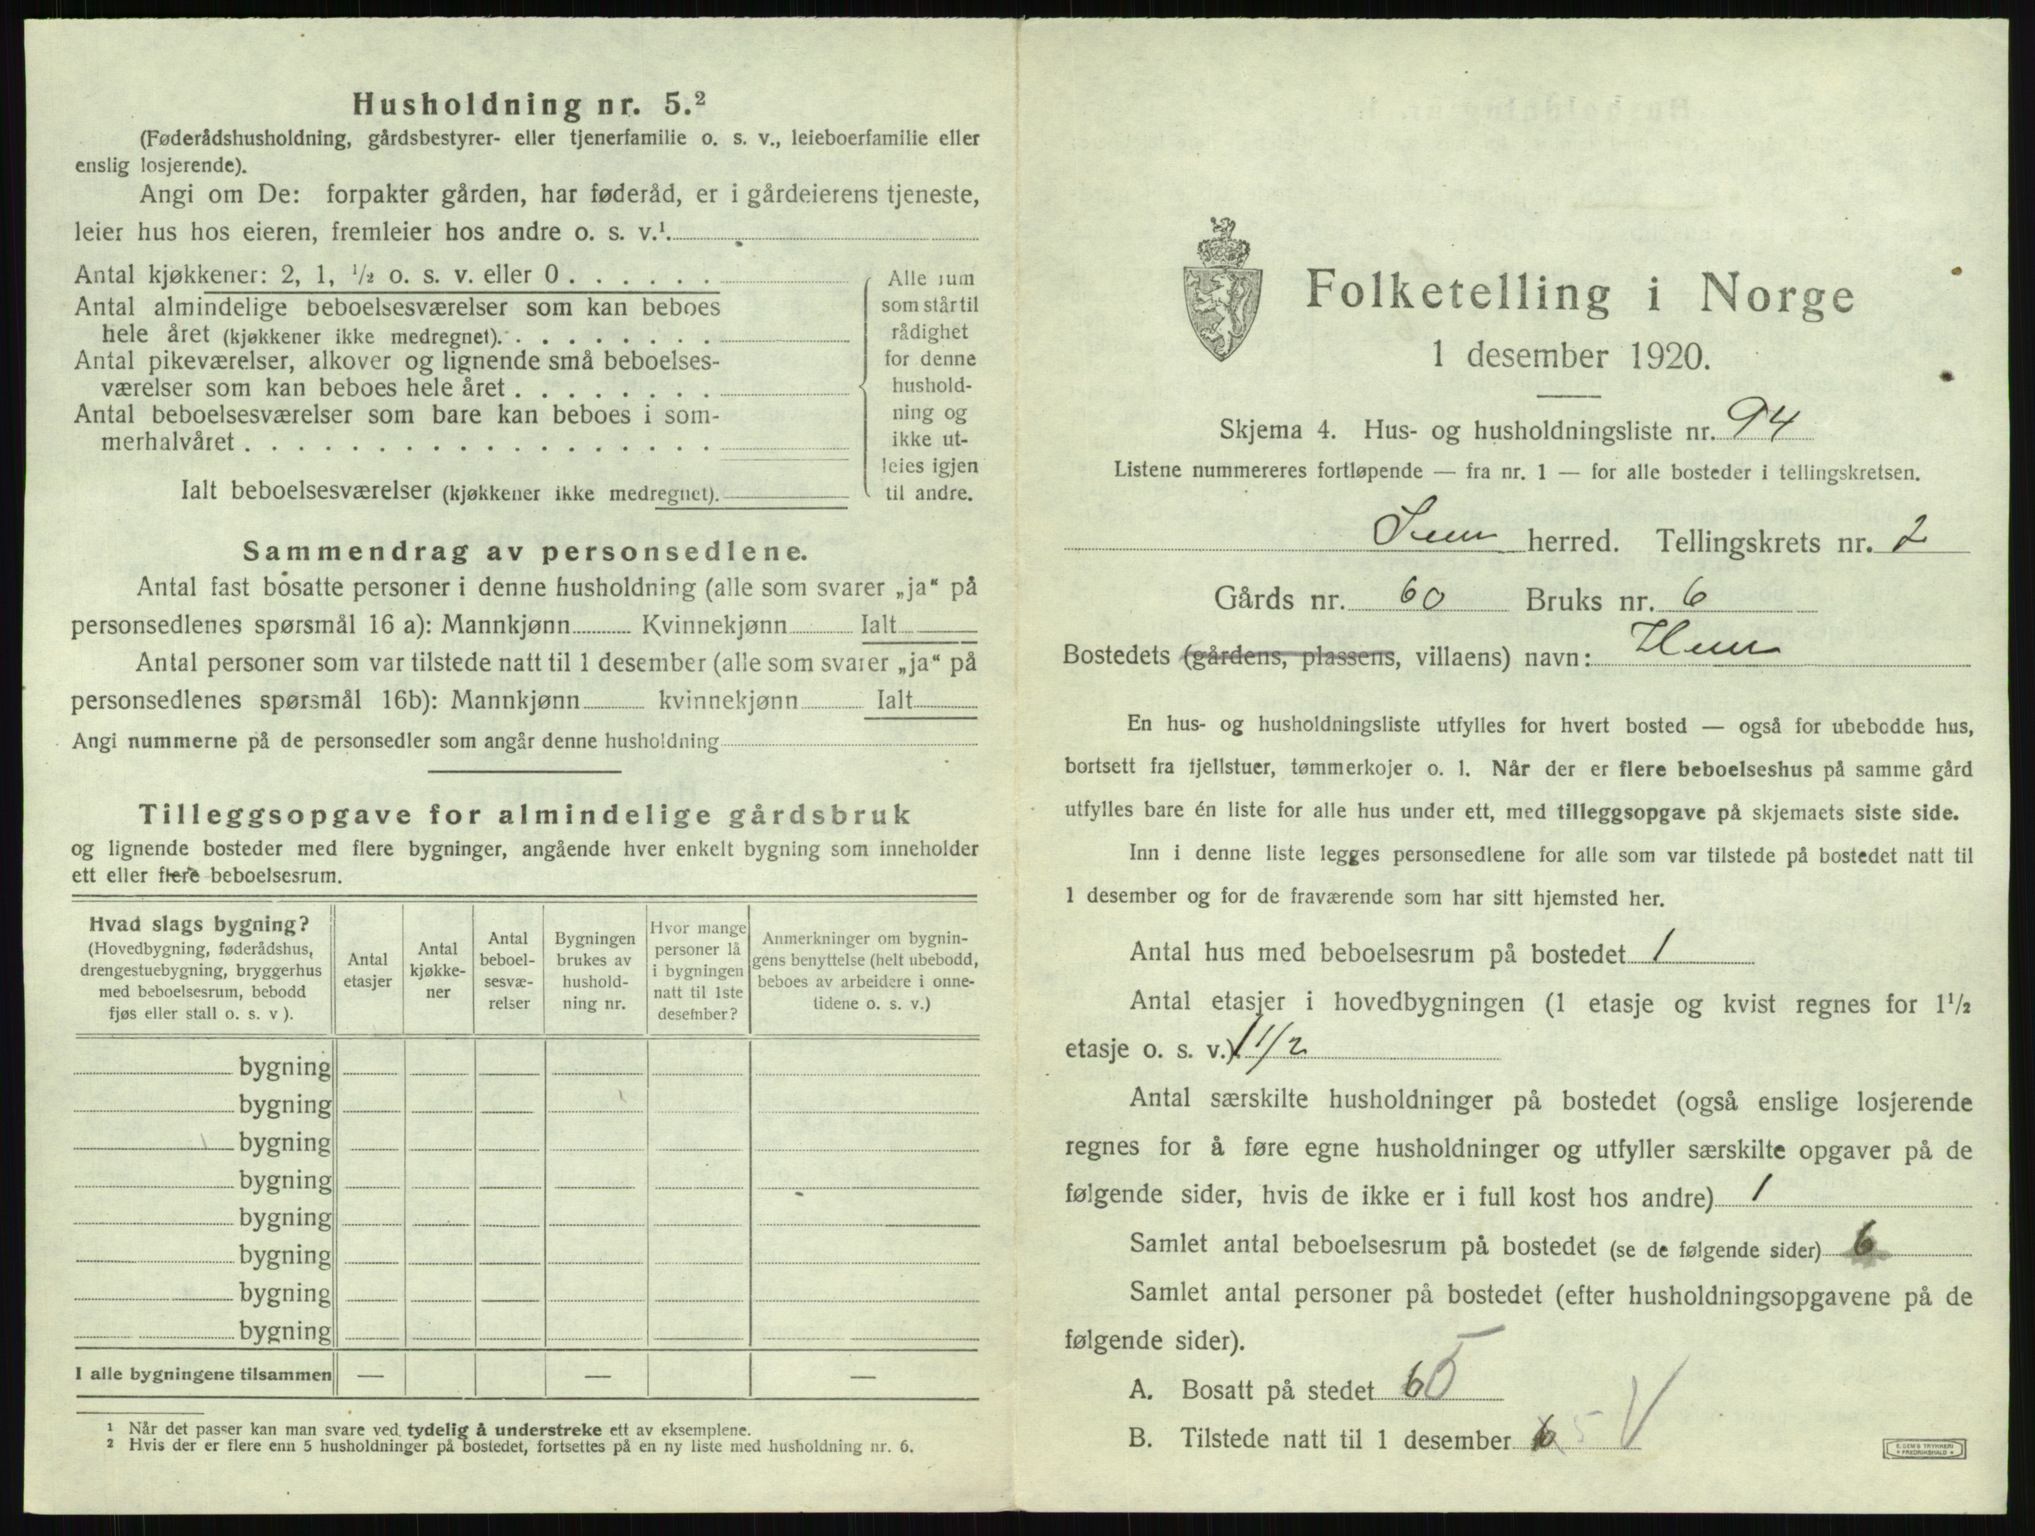 Husholdning nr. 5.²
(Føderådshusholdning, gårdsbestyrer- eller tjenerfamilie o. s. v., leieboerfamilie eller
enslig losjerende).
Angi om De: forpakter gården, har føderåd, er i gårdeierens tjeneste,
leier hus hos eieren, fremleier hos andre o. s. v.¹.
Antal kjøkkener: 2, 1, ½ o. s. v. eller 0 . . . . . .
Antal almindelige beboelsesværelser som kan beboes
hele året (kjøkkener ikke medregnet). . . . . . . . .
Antal pikeværelser, alkover og lignende små beboelses-
værelser som kan beboes hele året . . . . . . . .
Antal beboelsesværelser som bare kan beboes i som-
merhalvåret . . . . . . . . . . . . . . . . . .
Ialt beboelsesværelser (kjøkkener ikke medregnet).
Alle rum
som står til
rådighet
for denne
hushold-
ning og
ikke ut-
leies igjen
til andre.
Sammendrag av personsedlene.
Antal fast bosatte personer i denne husholdning (alle som svarer „ja“ på
personsedlenes spørsmål 16 a): Mannkjønn Kvinnekjønn Ialt
Antal personer som var tilstede natt til 1 desember (alle som svarer „ja“ på
personsedlenes spørsmål 16b): Mannkjønn kvinnekjønn Ialt
Angi nummerne på de personsedler som angår denne husholdning
Tilleggsopgave for almindelige gårdsbruk
og lignende bosteder med flere bygninger, angående hver enkelt bygning som inneholder
ett eller flere beboelsesrum.
Hvad slags bygning?
(Hovedbygning, føderådshus,
drengestuebygning, bryggerhus
med beboelsesrum, bebodd
fjøs eller stall o. s. v ).
Antal
etasjer
Antal
kjøkke-
ner
Antal
beboel-
sesvæ-
relser
Bygningen
brukes av
hushold-
ning nr.
Hvor mange
personer lå
i bygningen
natt til 1ste
desember?
Anmerkninger om bygnin-
gens benyttelse (helt ubebodd,
beboes av arbeidere i onne-
tidene o. s. v.)
bygning
bygning
bygning
bygning
bygning
bygning
bygning
bygning
I alle bygningene tilsammen — — —
¹ Når det passer kan man svare ved tydelig å understreke ett av eksemplene.
² Hvis der er flere enn 5 husholdninger på bostedet, fortsettes på en ny liste med husholdning nr. 6.
Folketelling i Norge
1 desember 1920.
Skjema 4. Hus- og husholdningsliste nr. 94
Listene nummereres fortløpende — fra nr. 1 — for alle bosteder i tellingskretsen.
Sem herred. Tellingskrets nr. 2
Gårds nr. 60 Bruks nr. 6
Bostedets (gårdens, plassens, villaens) navn: Hem
En hus- og husholdningsliste utfylles for hvert bosted — også for ubebodde hus,
bortsett fra fjellstuer, tømmerkojer o. l. Når der er flere beboelseshus på samme gård
utfylles bare én liste for alle hus under ett, med tilleggsopgave på skjemaets siste side.
Inn i denne liste legges personsedlene for alle som var tilstede på bostedet natt til
1 desember og for de fraværende som har sitt hjemsted her.
Antal hus med beboelsesrum på bostedet 1
Antal etasjer i hovedbygningen (1 etasje og kvist regnes for 1½
etasje o. s. v.). 1 1/2
Antal særskilte husholdninger på bostedet (også enslige losjerende
regnes for å føre egne husholdninger og utfyller særskilte opgaver på de
følgende sider, hvis de ikke er i full kost hos andre) 1
Samlet antal beboelsesrum på bostedet (se de følgende sider) 6
Samlet antal personer på bostedet (efter husholdningsopgavene på de
følgende sider).
A. Bosatt på stedet 6 5
B. Tilstede natt til 1 desember 6 5 V
E. SEMS TRYKKERI
FREDRIKSHALD